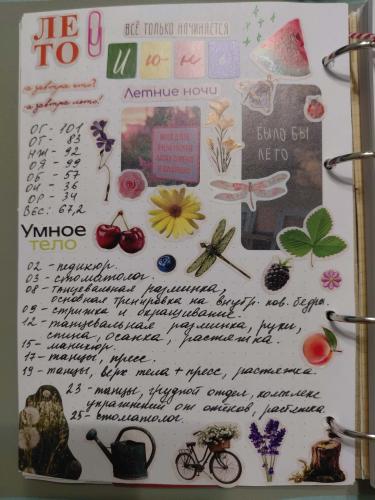 ЛЕ
ТО
ВСЁ ТОЛЬКО НАЧИНАЕТСЯ
Июнь
а завтра что?
а завтра лето!
Летние ночи
БЫЛО БЫ
ЛЕТО
ОГ - 101
ОГ - 83
НЖ - 92
ОЯ - 99
ОБ - 57
ОИ - 36
ОР - 34
Вес: 67,2
Умное
тело
02 - педикюр.
03 - стоматолог.
08 - танцевальная разминка,
основная тренировка на внутр. пов. бедры.
09 - стрижка и окрашивание.
12 - танцевальная разминка, руки,
спина, осанка, растяжка.
15 - маникюр.
17 - танцы, пресс.
19 - танцы, верх тела + пресс, растяжка.
23 - танцы, грудной отдел, комплекс
упражнений от отёков, растяжка.
25 - стоматолог.